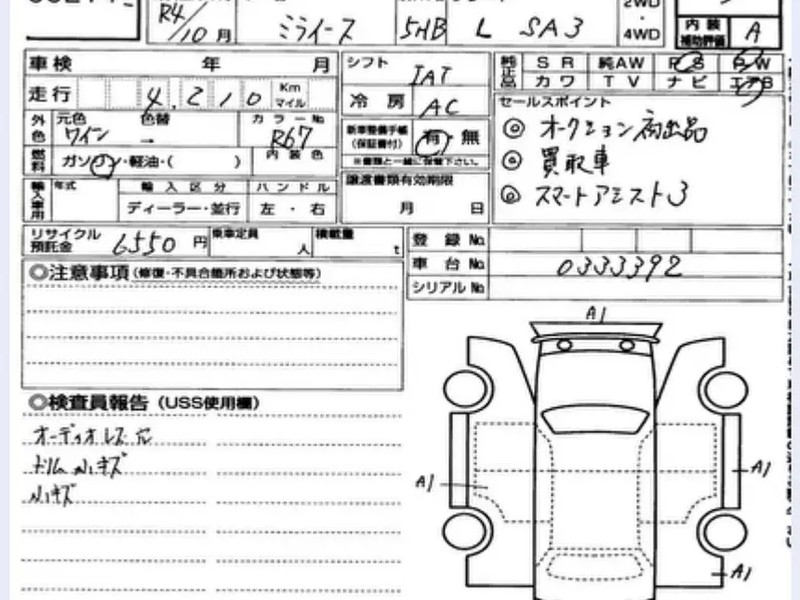 R4/10月 ミライース 5HB L SA3 2WD・4WD
内装補助評価 A
車検 年 月
シフト IAT
純正品 SR 純AW PS PW
カワ TV ナビ エアB
走行 4,210 Km マイル
冷房 AC
セールスポイント
外色 元色 ワイン 色替 → カラーNo R67
新車整備手帳(保証書付) 有・無
※書類と一緒に保管下さい。
◎ オークション初出品
◎ 買取車
◎ スマートアシスト3
燃料 ガソリン・軽油・( ) 内装色
輸入車用 年式 輸入区分 ハンドル
ディーラー・並行 左・右
譲渡書類有効期限
月 日
リサイクル預託金 6550円 乗車定員 人 積載量 t
登録No.
車台No. 0333392
シリアルNo.
◎注意事項(修復・不具合箇所および状態等)
A1
◎検査員報告(USS使用欄)
オーディオレス穴
ドリム小キズ
小キズ
A1
A1
A1